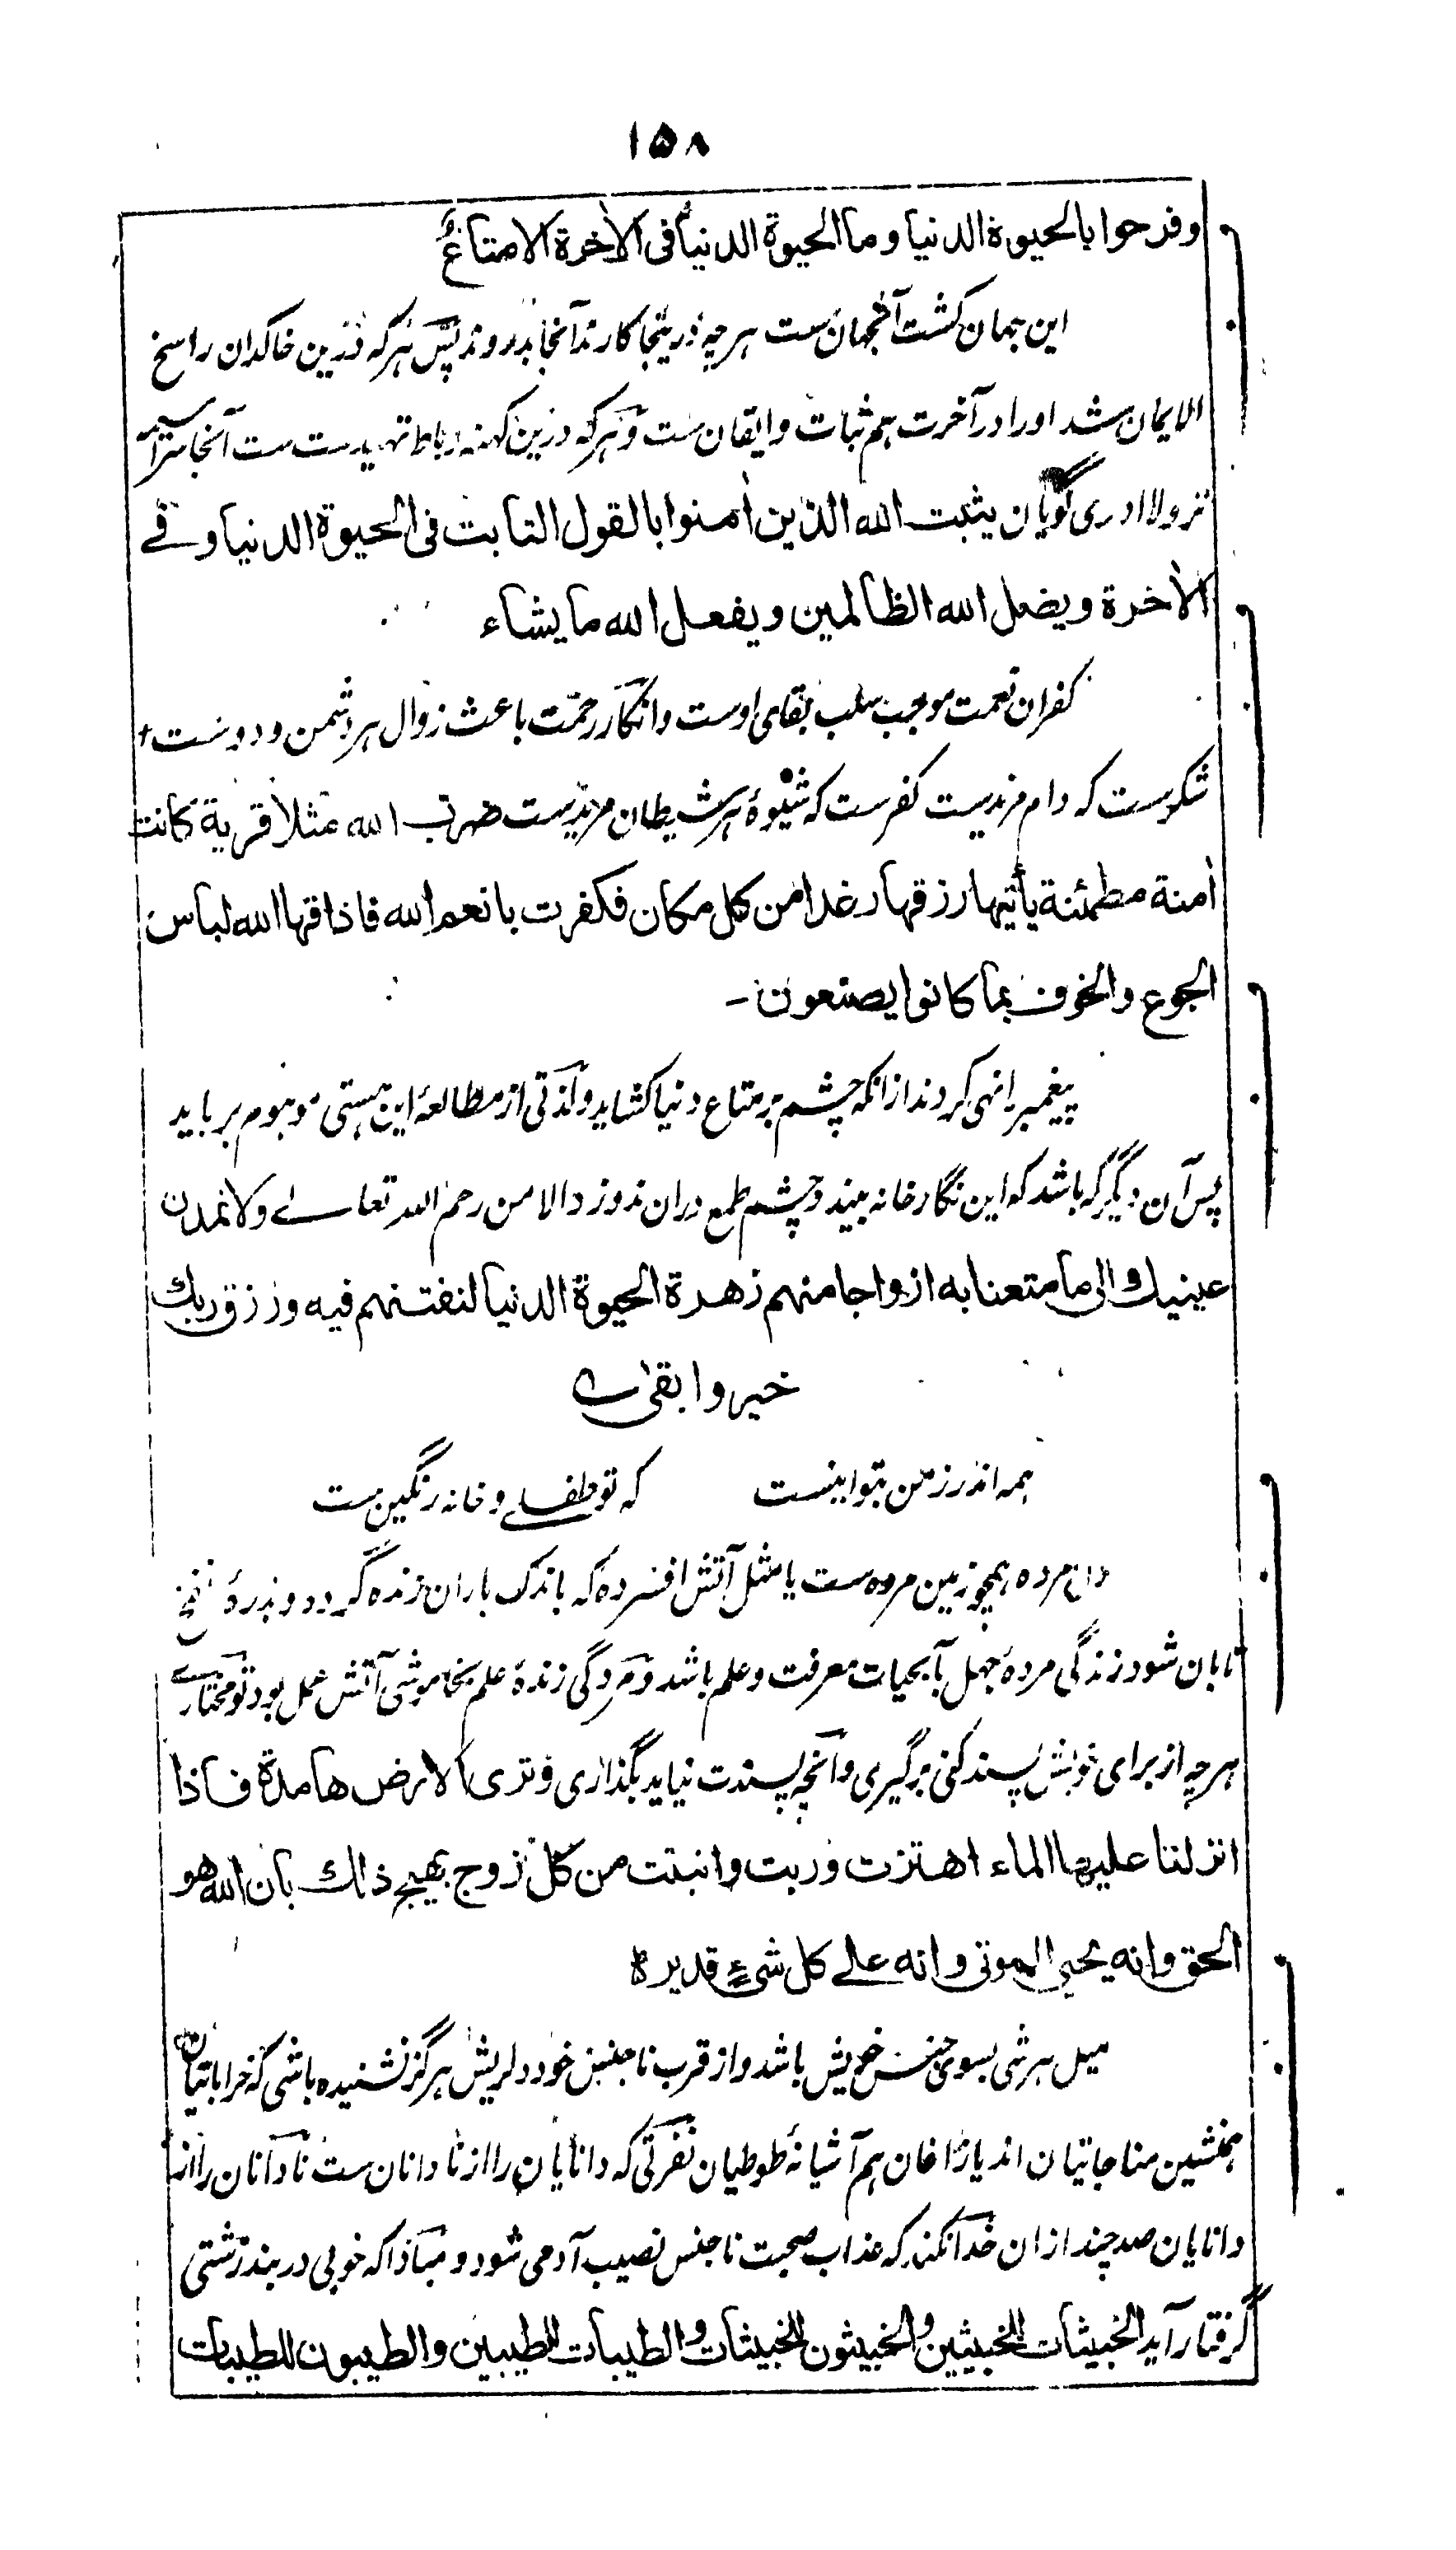 ۱۵۸
وفرحوا بالحیوة الدنیا وما الحیوة الدنیا فی الاٰخرة الا متاعٌ
این جهان کشت آنجهان ست هرچه درینجا کارند آنجا بدروند پس هرکه درین خاکدان راسخ
الایمان شد اورا در آخرت هم ثبات وایقان ست وهرکه درین کهنه رباط تهیدست ست آنجا سراسیمه
تر ولا ادری گویان یثبت الله الذین اٰمنوا بالقول الثابت فی الحیوة الدنیا وفے
الاٰخرة ویضل الله الظالمین ویفعل الله ما یشاء
کفران نعمت موجب سلب بقای اوست وانکار رحمت باعث زوال هر دشمن ودوست
شکرست که دام مزیدست کفرست که شیوهٔ هر شیطان مریدست ضرب الله مثلا قریة کانت
اٰمنة مطمئنة یأتیها رزقها رغدا من کل مکان فکفرت بانعم الله فاذاقها الله لباس
الجوع والخوف بما کانوا یصنعون -
پیغمبر را نهی کردند ازانکه چشم بر متاع دنیا کشاید ولذتی از مطالعهٔ این هستی موهوم برباید
پس آن دیگر که باشد که این نگارخانه بیند وچشم طمع دران ندوزد الا من رحم الله تعالے ولا تمدن
عینیك الی ما متعنا به ازواجا منهم زهرة الحیوة الدنیا لنفتنهم فیه ورزق ربك
خیر وابقیٰ ه
همه اندرز من بتو اینست که تو طفلے وخانه رنگین ست
مرده همچو زمین مرده ست یا مثل آتش افسرده که باندک باران زنده گردد وبذرهٔ
تابان شود زندگی مردهٔ جهل بآبحیات معرفت وعلم باشد ومردگی زندهٔ علم بخاموشی آتش عمل بود تو مختارے
هرچه از برای خویش پسند کنی برگیری وآنچه پسندت نیاید بگذاری وتری الارض هامدة فاذا
انزلنا علیها الماء اهتزت وربت وانبتت من کل زوج بهیج ذلك بان الله هو
الحق وانه یحیی الموتی وانه علے کل شیءٍ قدیر ه
میل هر شی بسوی جنس خویش باشد واز قرب ناجنس خود دلریش هرگز نشنیده باشی که خراباتیان
همنشین مناجاتیان اند یا زاغان هم آشیانهٔ طوطیان نفرتی که دانایان را از نادانان ست نادانان را از
دانایان صد چند ازان خدا نکند که عذاب صحبت ناجنس نصیب آدمی شود ومبادا که خوبی در بند زشتی
گرفتار آید الخبیثات للخبیثین والخبیثون للخبیثات والطیبات للطیبین والطیبون للطیبات